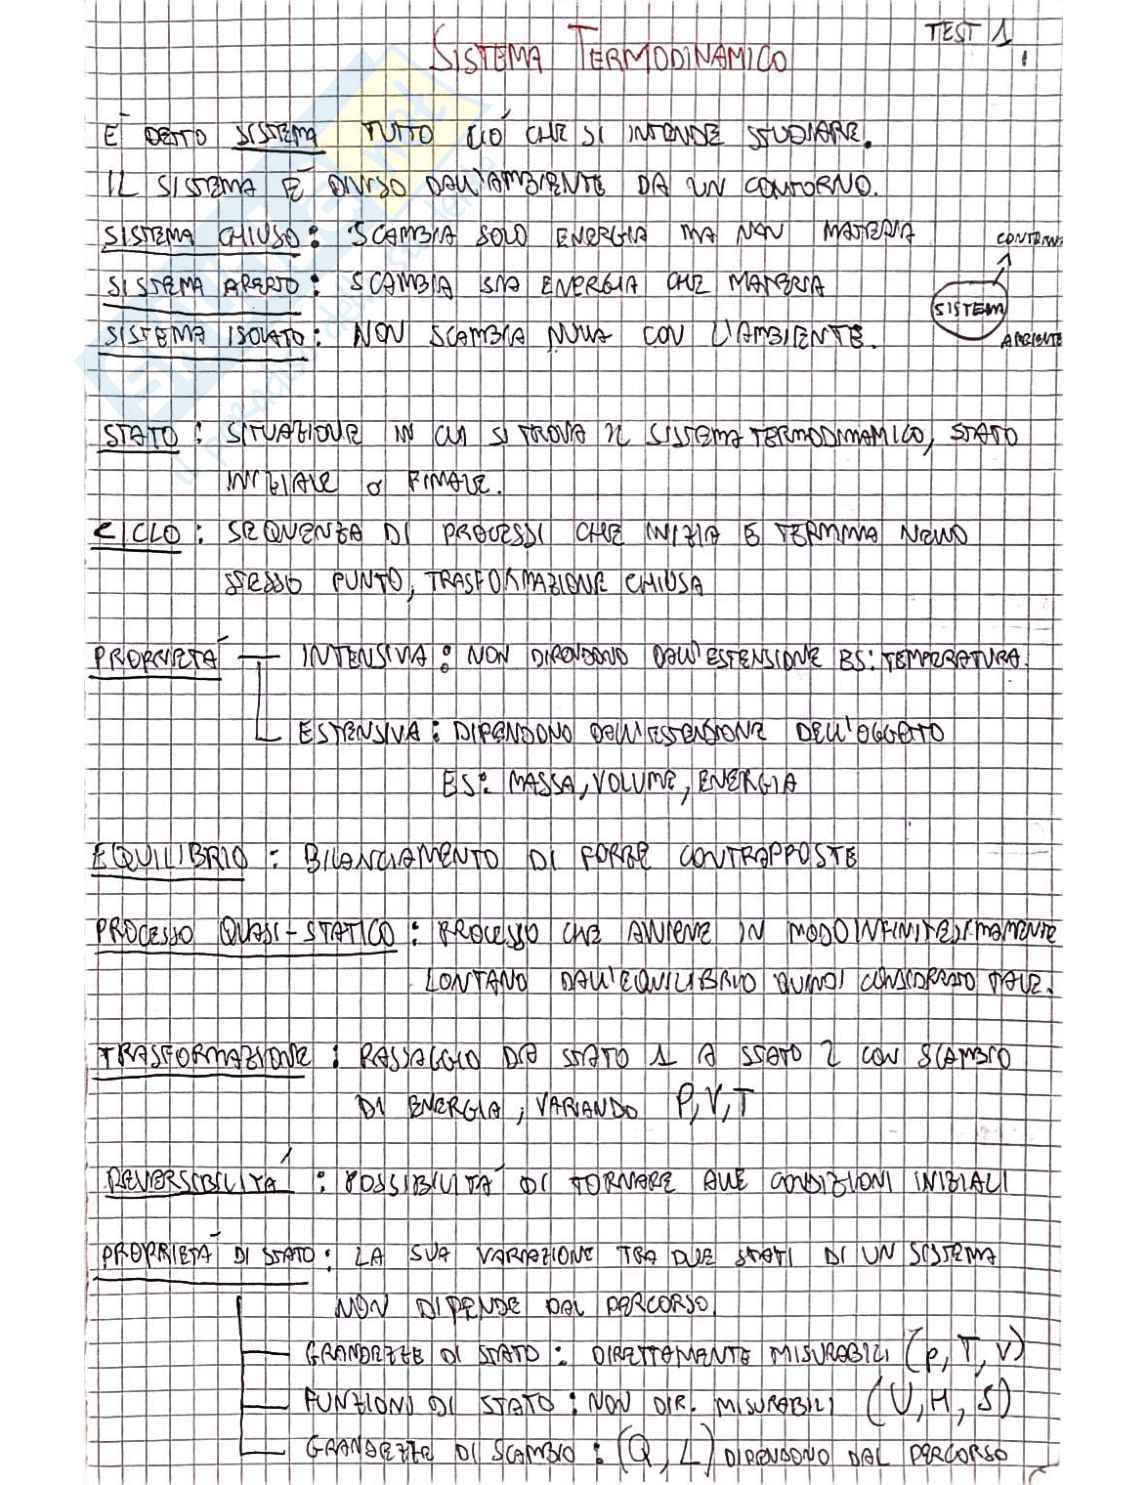 TEST 1
1.
SISTEMA TERMODINAMICO
È DETTO SISTEMA TUTTO CIÒ CHE SI INTENDE STUDIARE.
IL SISTEMA È DIVISO DALL'AMBIENTE DA UN CONTORNO.
SISTEMA CHIUSO: SCAMBIA SOLO ENERGIA MA NON MATERIA
CONTORNO
SISTEMA APERTO: SCAMBIA SIA ENERGIA CHE MATERIA
SISTEMA
SISTEMA ISOLATO: NON SCAMBIA NULLA CON L'AMBIENTE.
AMBIENTE
STATO: SITUAZIONE IN CUI SI TROVA IL SISTEMA TERMODINAMICO, STATO
INIZIALE O FINALE.
CICLO: SEQUENZA DI PROCESSI CHE INIZIA E TERMINA NELLO
STESSO PUNTO, TRASFORMAZIONE CHIUSA
PROPRIETÁ INTENSIVA: NON DIPENDONO DALL'ESTENSIONE ES: TEMPERATURA.
ESTENSIVA: DIPENDONO DALL'ESTENSIONE DELL'OGGETTO
ES: MASSA, VOLUME, ENERGIA
EQUILIBRIO: BILANCIAMENTO DI FORZE CONTRAPPOSTE
PROCESSO QUASI-STATICO: PROCESSO CHE AVVIENE IN MODO INFINITESIMAMENTE
LONTANO DALL'EQUILIBRIO QUINDI CONSIDERATO TALE.
TRASFORMAZIONE: PASSAGGIO DA STATO 1 A STATO 2 CON SCAMBIO
DI ENERGIA, VARIANDO P, V, T
REVERSIBILITÁ: POSSIBILITÁ DI TORNARE ALLE CONDIZIONI INIZIALI
PROPRIETÁ DI STATO: LA SUA VARIAZIONE TRA DUE STATI DI UN SISTEMA
NON DIPENDE DAL PERCORSO.
GRANDEZZE DI STATO: DIRETTAMENTE MISURABILI (P, T, V)
FUNZIONI DI STATO: NON DIR. MISURABILI (U, H, S)
GRANDEZZE DI SCAMBIO: (Q, L) DIPENDONO DAL PERCORSO